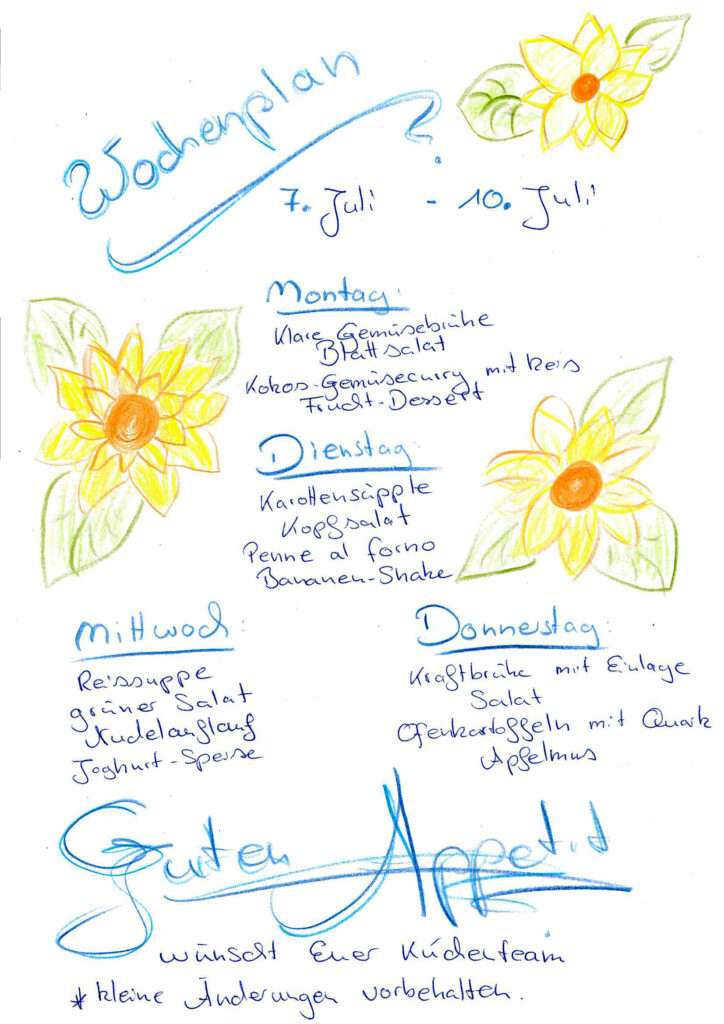 Wochenplan
7. Juli - 10. Juli
Montag:
Klare Gemüsebrühe
Blattsalat
Kokos-Gemüsecurry mit Reis
Frucht-Dessert
Dienstag:
Karottensüpple
Kopfsalat
Penne al forno
Bananen-Shake
Mittwoch:
Reissuppe
grüner Salat
Nudelauflauf
Joghurt-Speise
Donnerstag:
Kraftbrühe mit Einlage
Salat
Ofenkartoffeln mit Quark
Apfelmus
Guten Appetit
wünscht Euer Küchenteam
* kleine Änderungen vorbehalten.